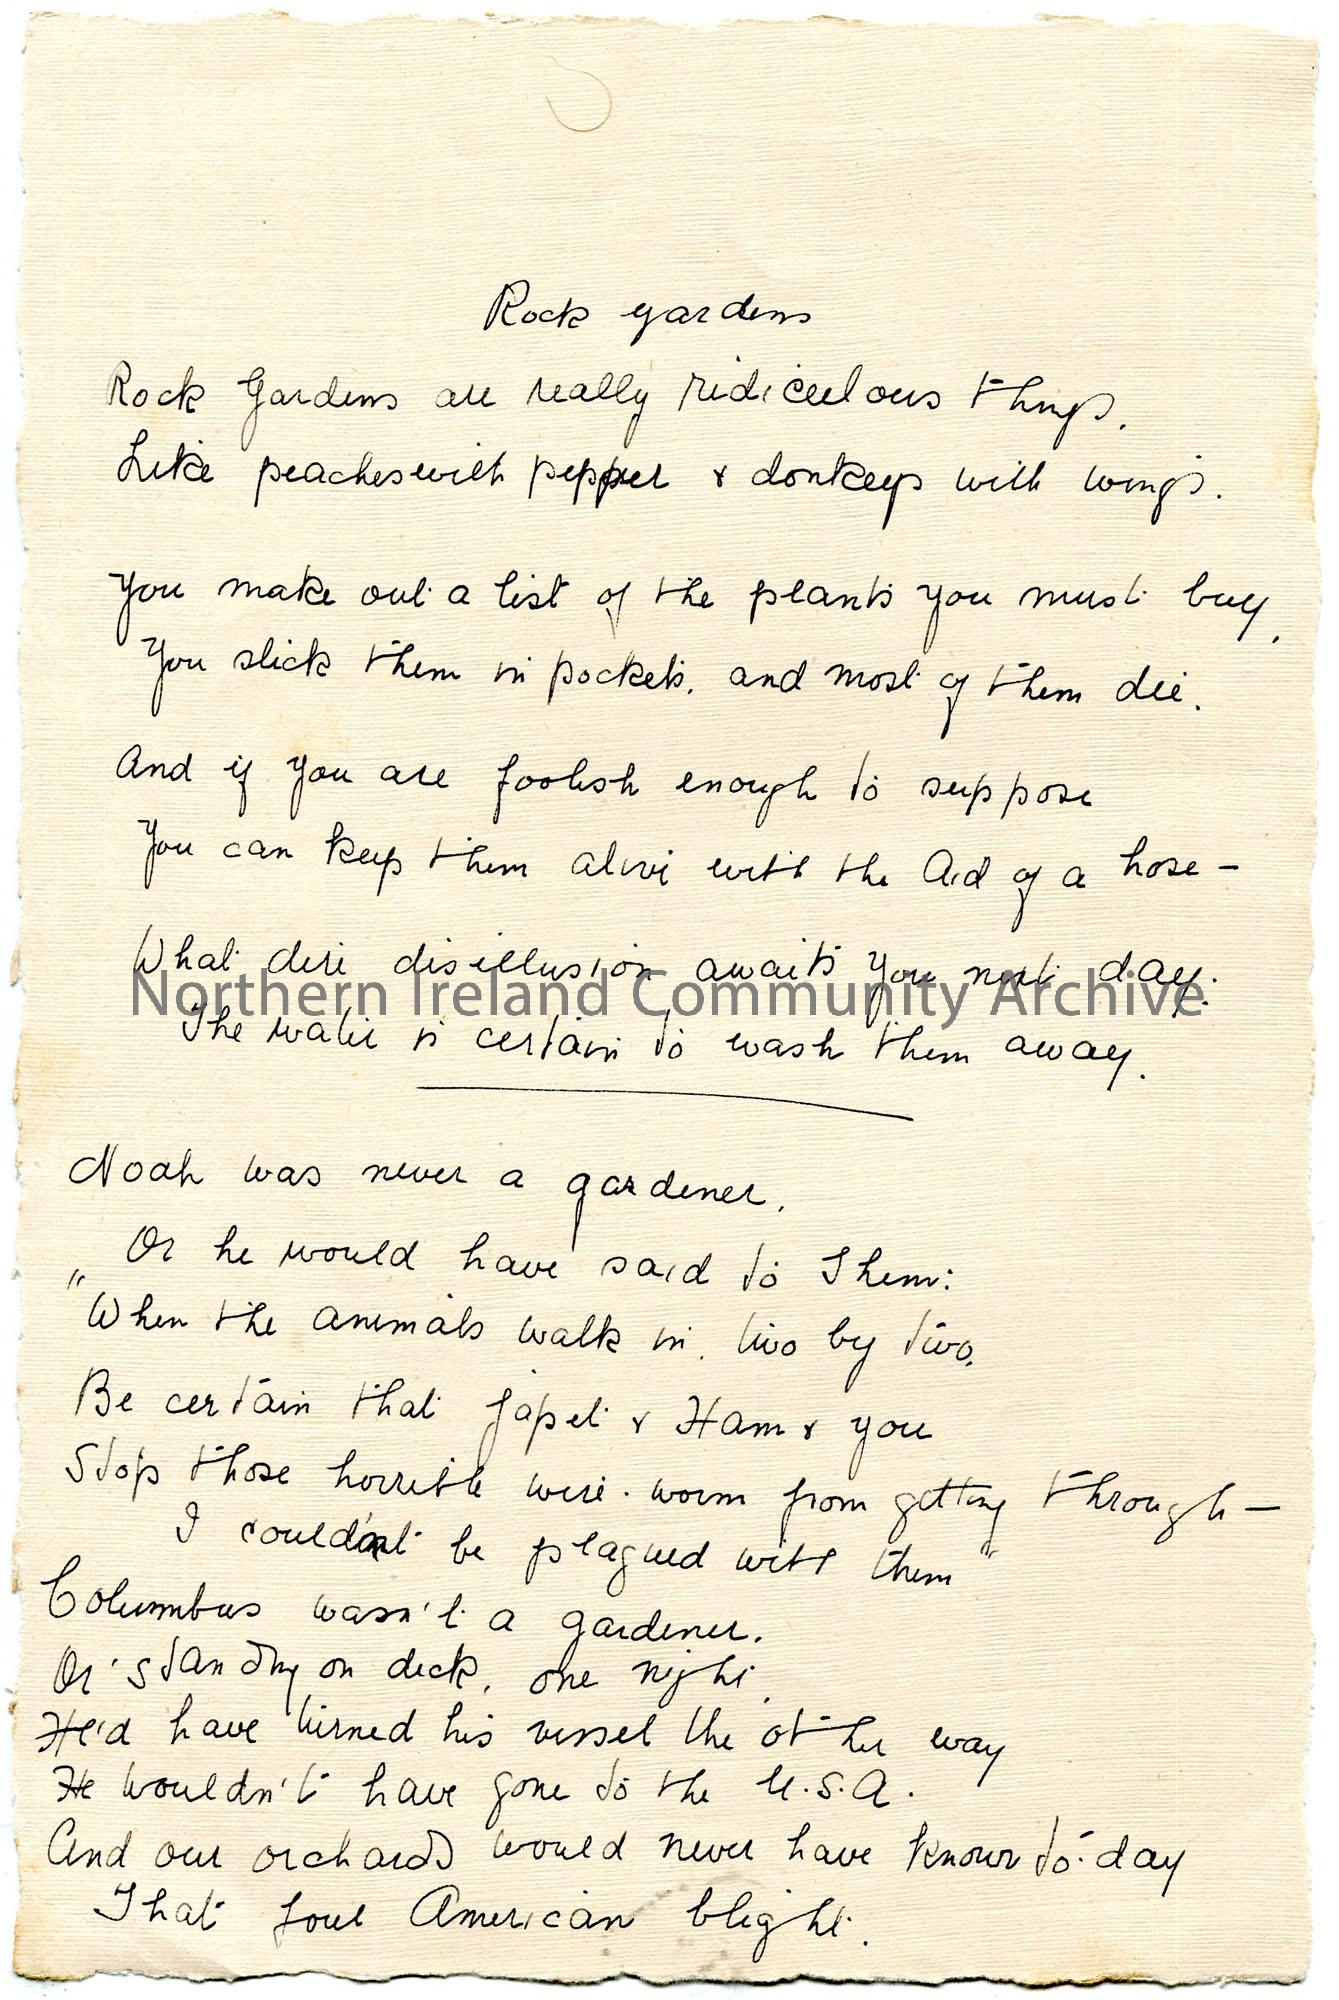 Rock gardens
Rock Gardens are really ridiculous things,
Like peaches with pepper & donkeys with wings.
You make out a list of the plants you must buy,
You stick them in pockets, and most of them die.
And if you are foolish enough to suppose
You can keep them alive with the Aid of a hose –
What dire disillusion awaits you next day.
Northern Ireland Community Archive
The water is certain to wash them away.
Noah was never a gardener,
Or he would have said to Them:
"When the animals walk in, two by two,
Be certain that Japet & Ham & you
Stop those horrible wire-worm from getting through –
I couldn't be plagued with them"
Columbus wasn't a gardener.
Or standing on deck, one night,
He'd have turned his vessel the other way
He wouldn't have gone to the U.S.A.
And our orchards would never have known to-day
That foul American blight.